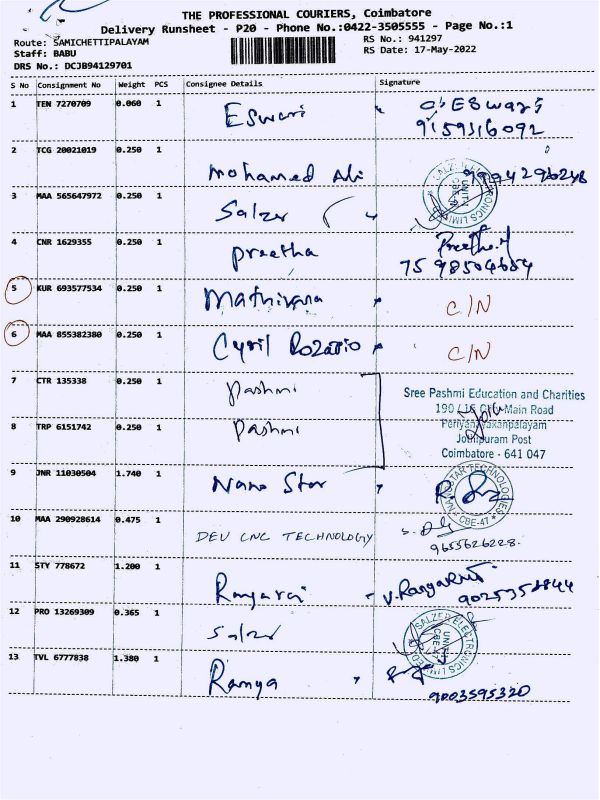 THE PROFESSIONAL COURIERS, Coimbatore
Delivery Runsheet - P20 - Phone No.:0422-3505555 - Page No.:1
Route: SAMICHETTIPALAYAM
Staff: BABU
DRS No.: DCJB94129701
RS No.: 941297
RS Date: 17-May-2022
S No Consignment No Weight PCS Consignee Details Signature
1 TEN 7270709 0.060 1 Eswari O. ESwari
9159316092
2 TCG 20021019 0.250 1 Mohamed Ali 9994296248
3 MAA 565647972 0.250 1 Salzer SALZER ELECTRONICS LIMITED
CBE-47
4 CNR 1629355 0.250 1 Preetha Preetha.M
7598504604
5 KUR 693577534 0.250 1 Mathivana C/N
6 MAA 855382380 0.250 1 Cyril Rozario C/N
7 CTR 135338 0.250 1 Pashmi
8 TRP 6151742 0.250 1 Pashmi
Sree Pashmi Education and Charities
190 / Main Road
Periyanayakanpalayam
Jothipuram Post
Coimbatore - 641 047
9 JNR 11030504 1.740 1 Nano Star NANOSTAR TECHNOLOGIES
CBE-47
10 MAA 290928614 0.475 1 DEV CNC TECHNOLOGY
9655626228
11 STY 778672 1.200 1 Rangaraj V.Ranga
12 PRO 13269309 0.365 1 Salzer SALZER ELECTRONICS LIMITED
UNIT
CBE-47
13 TVL 6777838 1.380 1 Ramya
9003595320